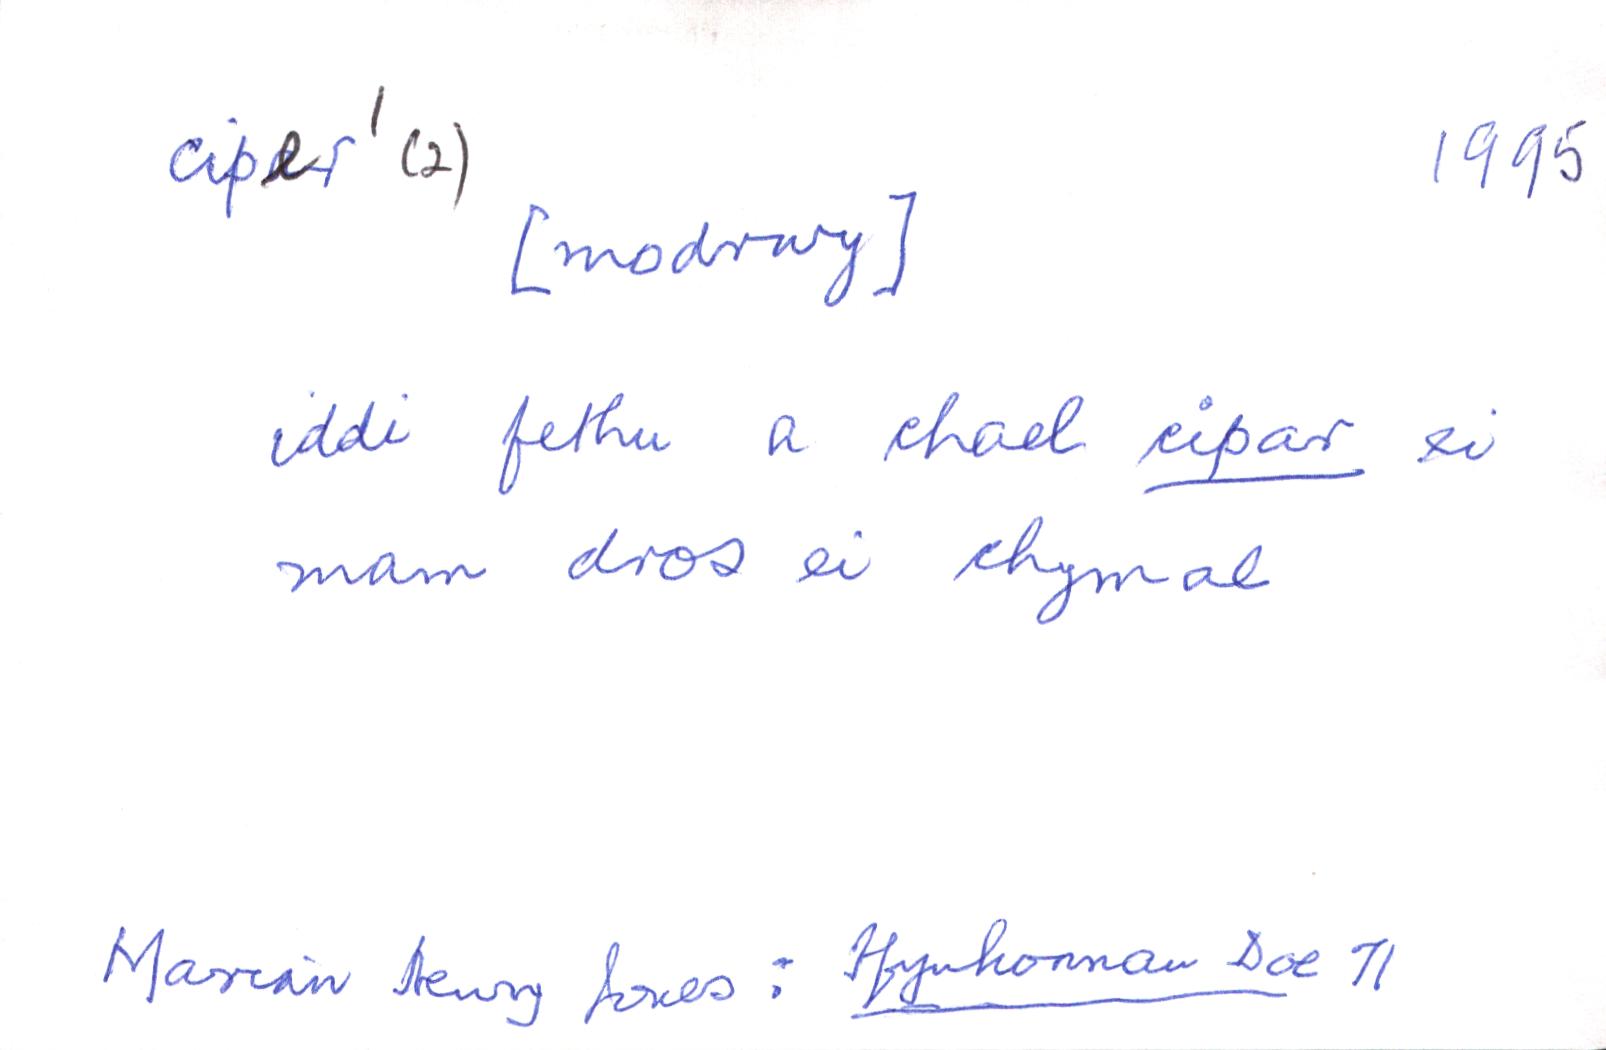 ciper¹ (2) 1995
[modrwy]
iddi fethu a chael cipar ei
mam dros ei chymal
Marian Henry Jones : Hynhonnau Doe 71